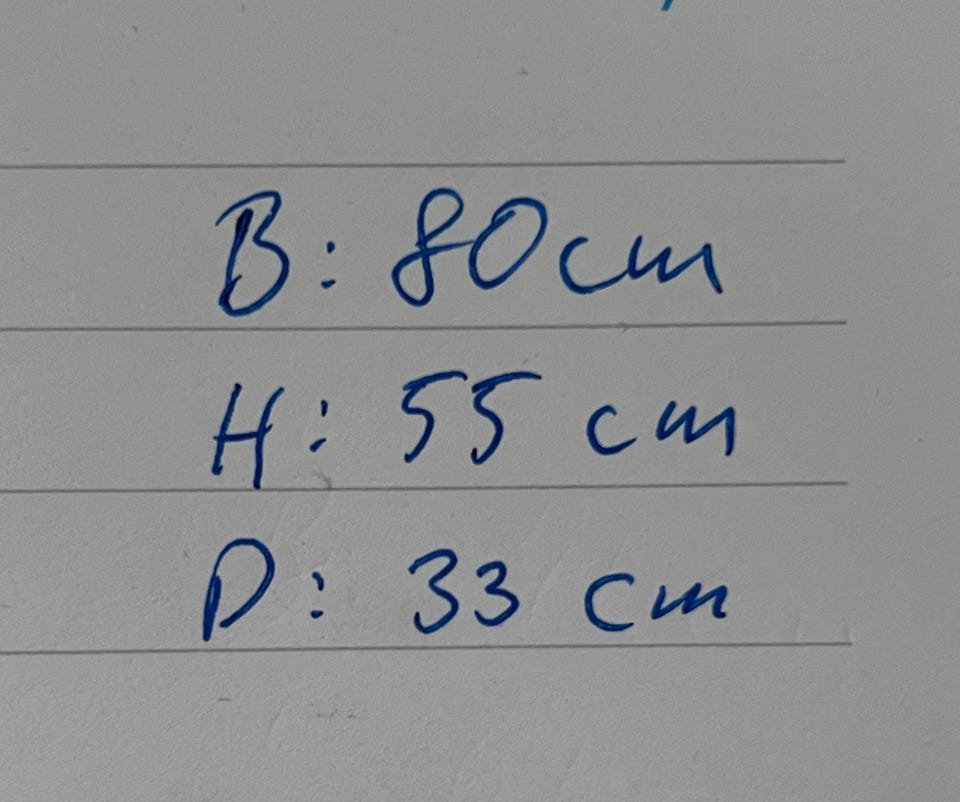 B: 80cm
H: 55 cm
D: 33 cm